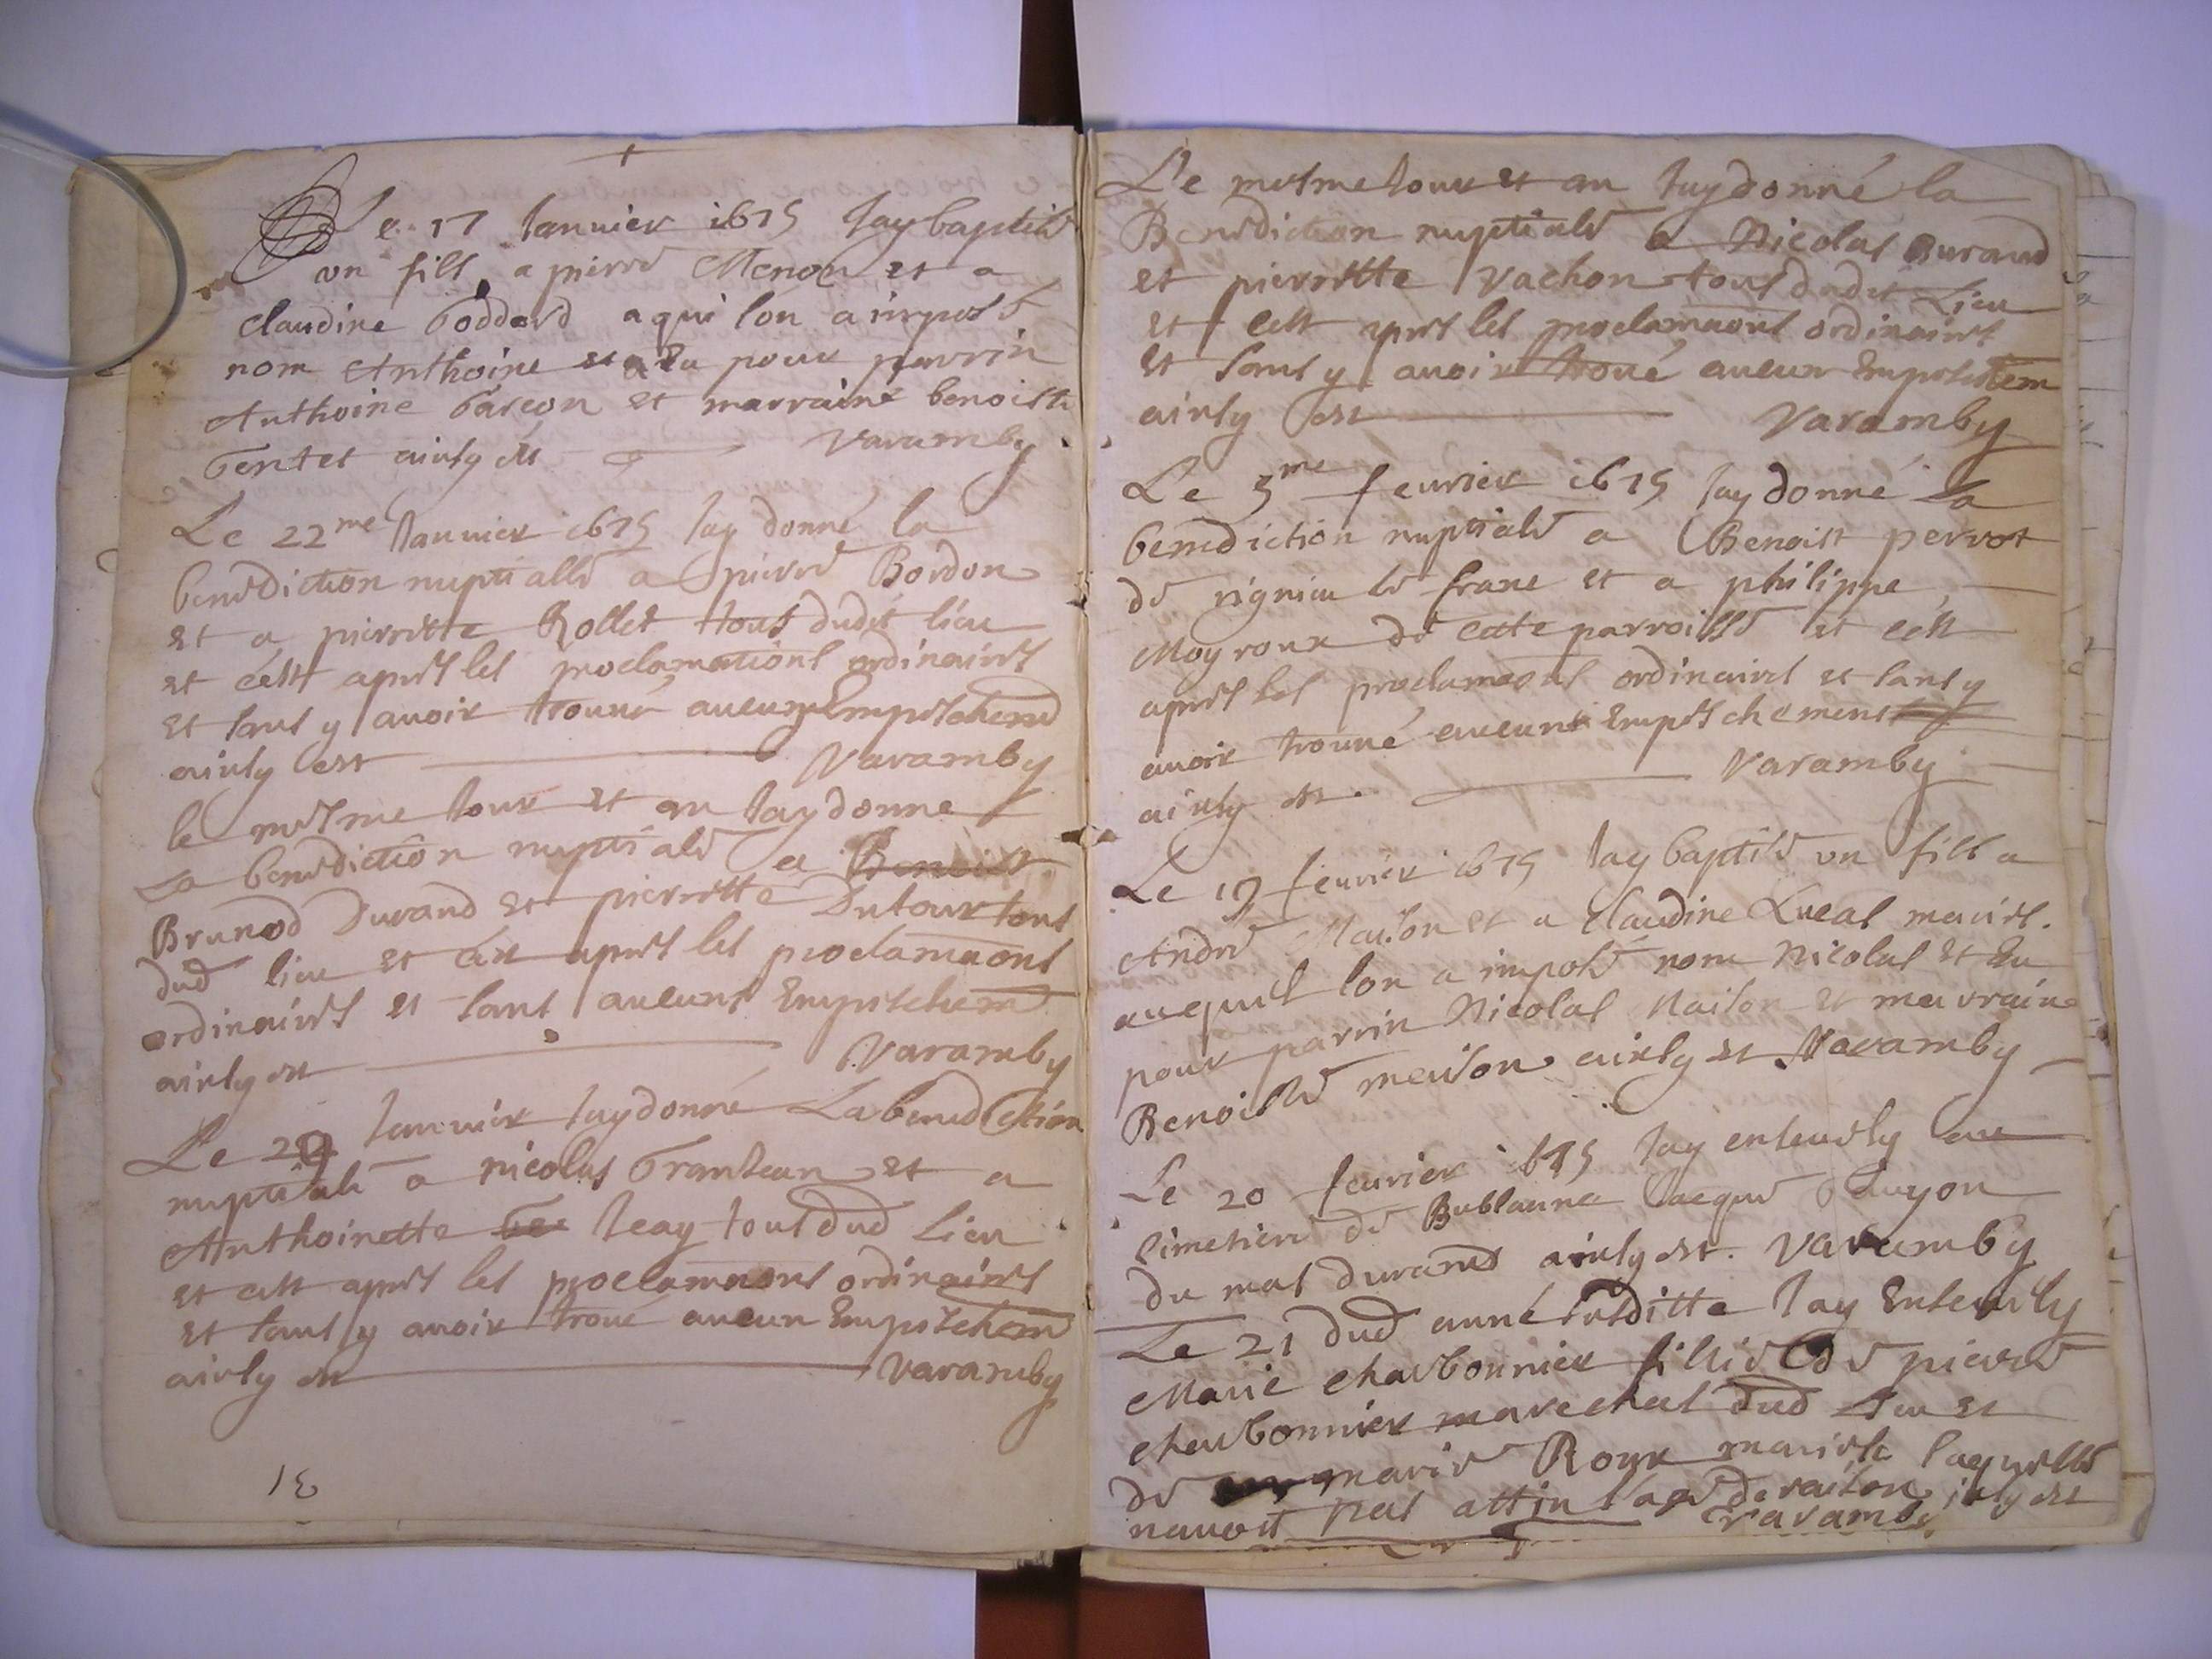 Le 17 Januier 1675 Jay baptisé
un fils a pierre Menon et a
claudine Goddard a qui lon a imposé
nom Anthoine et a Eu pour parrin
Anthoine Garcon et marraine benoiste
Gentet ainsy est Varamby
Le 22me Januier 1675 Jay donné la
benediction nuptialle a pierre Bordon
et a pierrette Rollet tous dudit lieu
et cest apres les proclamations ordinaires
et sans y auoir trouué aucun Empeschem
ainsy est Varamby
le mesme Jour et an Jay donne
La benediction nuptiale a Benoist
Brunod Durand et pierrette Dutour tous
dud lieu et cest apres les proclamaons
ordinaires et sans aucuns Empeschem
ainsy est Varamby
Le Januier Jay donné La benediction
nuptiale a nicolas Granjean et a
Anthoinette Jeay tous dud Lieu
et cest apres les proclamaons ordinaires
et sans y auoir troué aucun Empeschem
ainsy est Varamby
Le mesme Jour et an Jay donné la
Benediction nuptiale a Nicolas Durand
et pierrette Vachon tous dudit Lieu
et cest apres les proclamaons ordinaires
et sans y auoir troué aucun Empeschem
ainsy est Varamby
Le 5me feurier 1675 Jay donné La
benediction nuptiale a Benoist perrot
de rignieu le franc et a philippe
Moyroux de cette parroisse et cest
apres les proclamaons ordinaires et sans y
auoir trouué aucuns Empeschement
ainsy est. Varamby
Le 19 feurier 1675 Jay baptisé un fils a
André Maison et a Claudine Lucas mariés.
auquel lon a imposé nom Nicolas et Eu
pour parrin Nicolas Maison et marraine
Benoiste maison ainsy est Varamby
Le 20 feurier 1675 Jay enseuely au
simetiere de Bublanne Jacque Guyon
du mas durand ainsy est. Varamby
Le 21 dud anné susditte Jay Enseuely
Marie charbonnier fillie de pierre
charbonnier marechal dud Lieu et
de marie Roux mariés laquelle
nauoit pas attin lage de raison isy est
Varamby